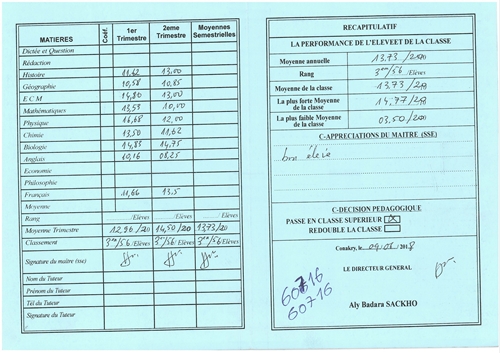 MATIERES Coéf. 1er Trimestre 2eme Trimestre Moyennes Semestrielles
Dictée et Question
Rédaction
Histoire 11,62 13,00
Géographie 10,58 10,85
E C M 14,80 13,00
Mathématiques 13,53 10,00
Physique 16,68 12,00
Chimie 13,50 11,62
Biologie 14,83 14,75
Anglais 10,16 08,25
Economie
Philosophie
Français 11,66 13,5
Moyenne
Rang /Elèves /Elèves /Elèves
Moyenne Trimestre 12,96 /20 14,50 /20 13,73 /20
Classement 3ème /56 /Elèves 3è /56 /Elèves 3è /56 /Elèves
Signature du maître (sse)
Nom du Tuteur
Prénom du Tuteur
Tél du Tuteur
Signature du Tuteur
RECAPITULATIF
LA PERFORMANCE DE L'ELEVE ET DE LA CLASSE
Moyenne annuelle 13,73 /20
Rang 3ème /56 /Elèves
Moyenne de la classe 13,73 /20
La plus forte Moyenne de la classe 14,77 /20
La plus faible Moyenne de la classe 03,50 /20
C-APPRECIATIONS DU MAITRE (SSE)
bon élève
C-DECISION PEDAGOGIQUE
PASSE EN CLASSE SUPERIEUR X
REDOUBLE LA CLASSE
Conakry, le 09.06 2018
LE DIRECTEUR GENERAL
60716
60716
Aly Badara SACKHO